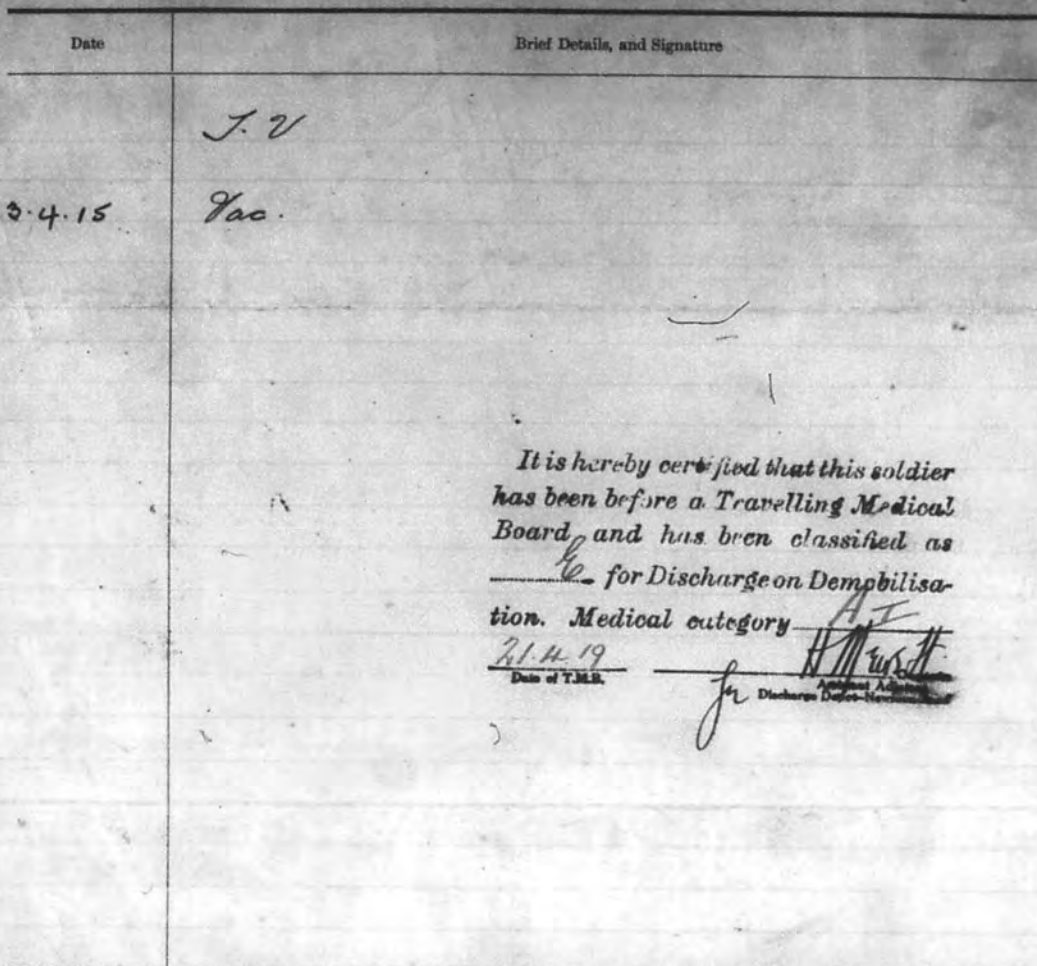 Date Brief Details, and Signature
T. V
3.4.15 Vac.
It is hereby certified that this soldier
has been before a Travelling Medical
Board, and has been classified as
E for Discharge on Demobilisa-
tion. Medical category A I
21.4.19
Date of T.M.B.
for Discharge Depot